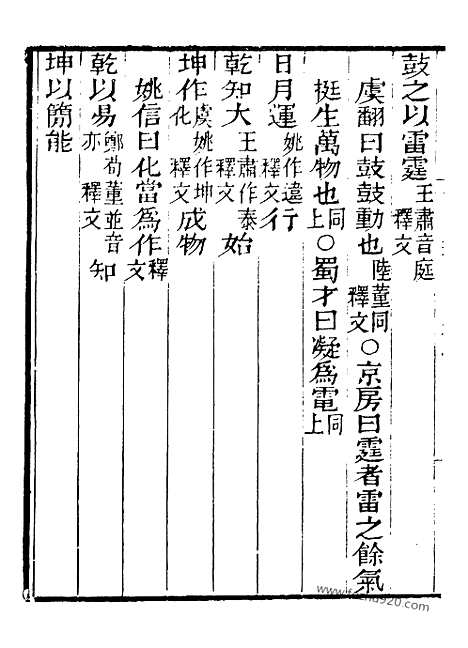 鼓之以雷霆王肅音庭釋文
虞翻曰鼓鼓動也陸董同釋文○京房曰霆者雷之餘氣
挺生萬物也同上○蜀才曰凝爲電同上
日月運姚作違行釋文行
乾知大王肅作泰釋文始
坤作虞姚作坤化釋文成物
姚信曰化當爲作釋文
乾以易鄭荀董並音亦釋文知
坤以簡能